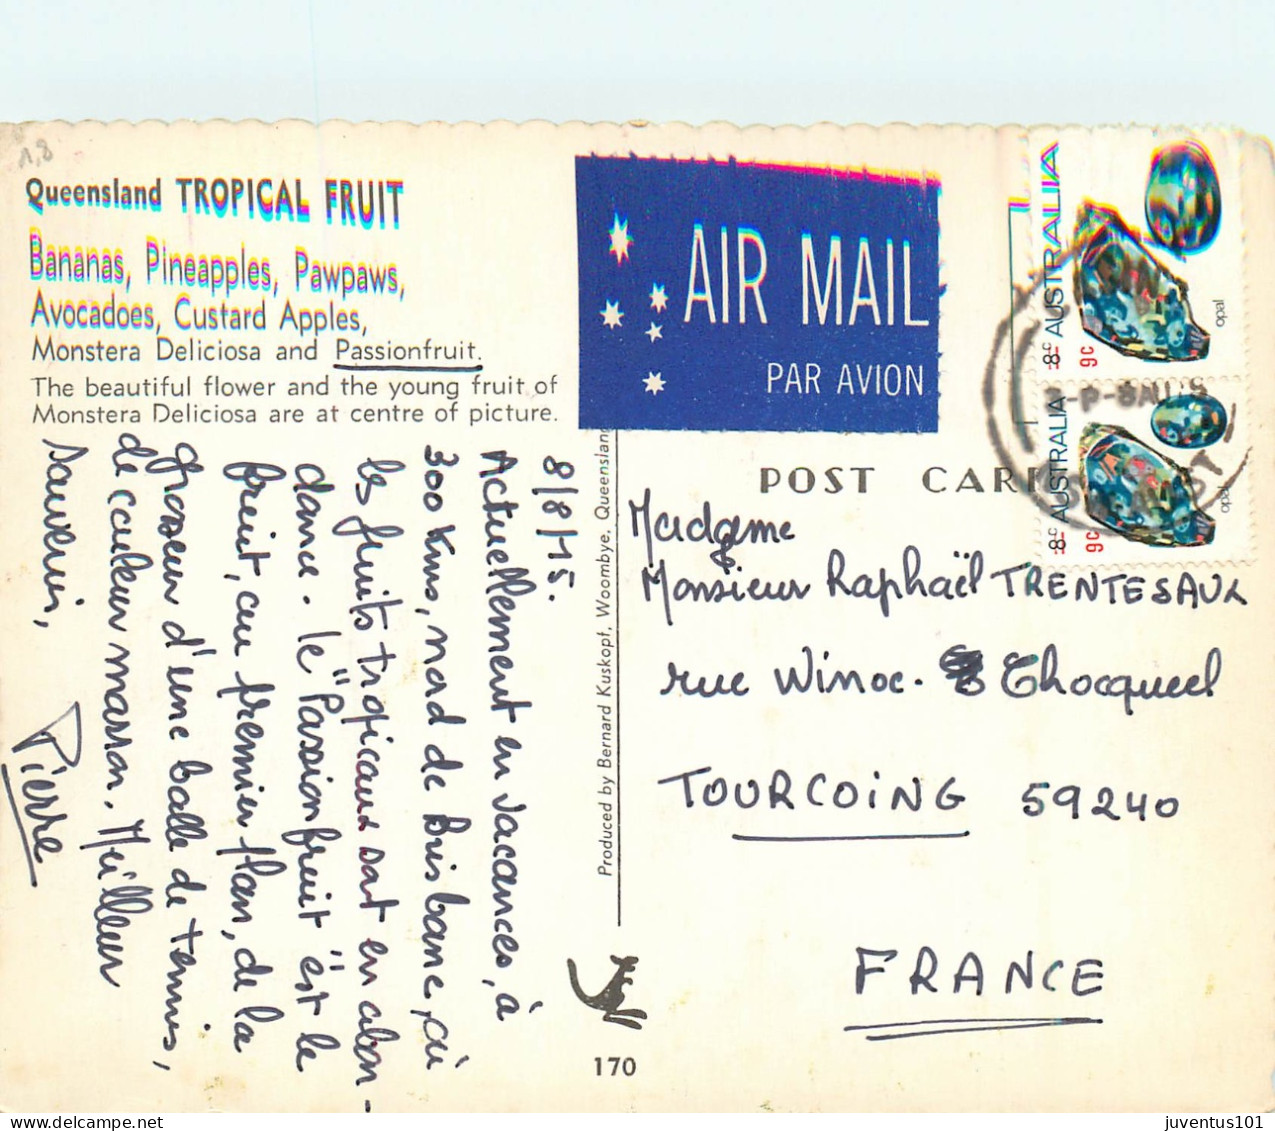 1,8
Queensland TROPICAL FRUIT
Bananas, Pineapples, Pawpaws,
Avocadoes, Custard Apples,
Monstera Deliciosa and Passionfruit.
The beautiful flower and the young fruit of
Monstera Deliciosa are at centre of picture.
8/8/75.
Actuellement en vacances, à
300 Kms, nord de Brisbane, où
les fruits tropicaux sont en abon-
dance. le "Passionfruit" est le
fruit, au premier plan, de la
grosseur d'une balle de tennis,
de couleur marron. Meilleur
souvenir,
Pierre
Produced by Bernard Kuskopf, Woombye, Queensland
170
AIR MAIL
PAR AVION
AUSTRALIA
8c
9c
opal
AUSTRALIA
8c
9c
opal
POST CAR
Madame
Monsieur Raphaël TRENTESAUX
rue Winoc. Chocqueel
TOURCOING 59240
FRANCE
juventus101